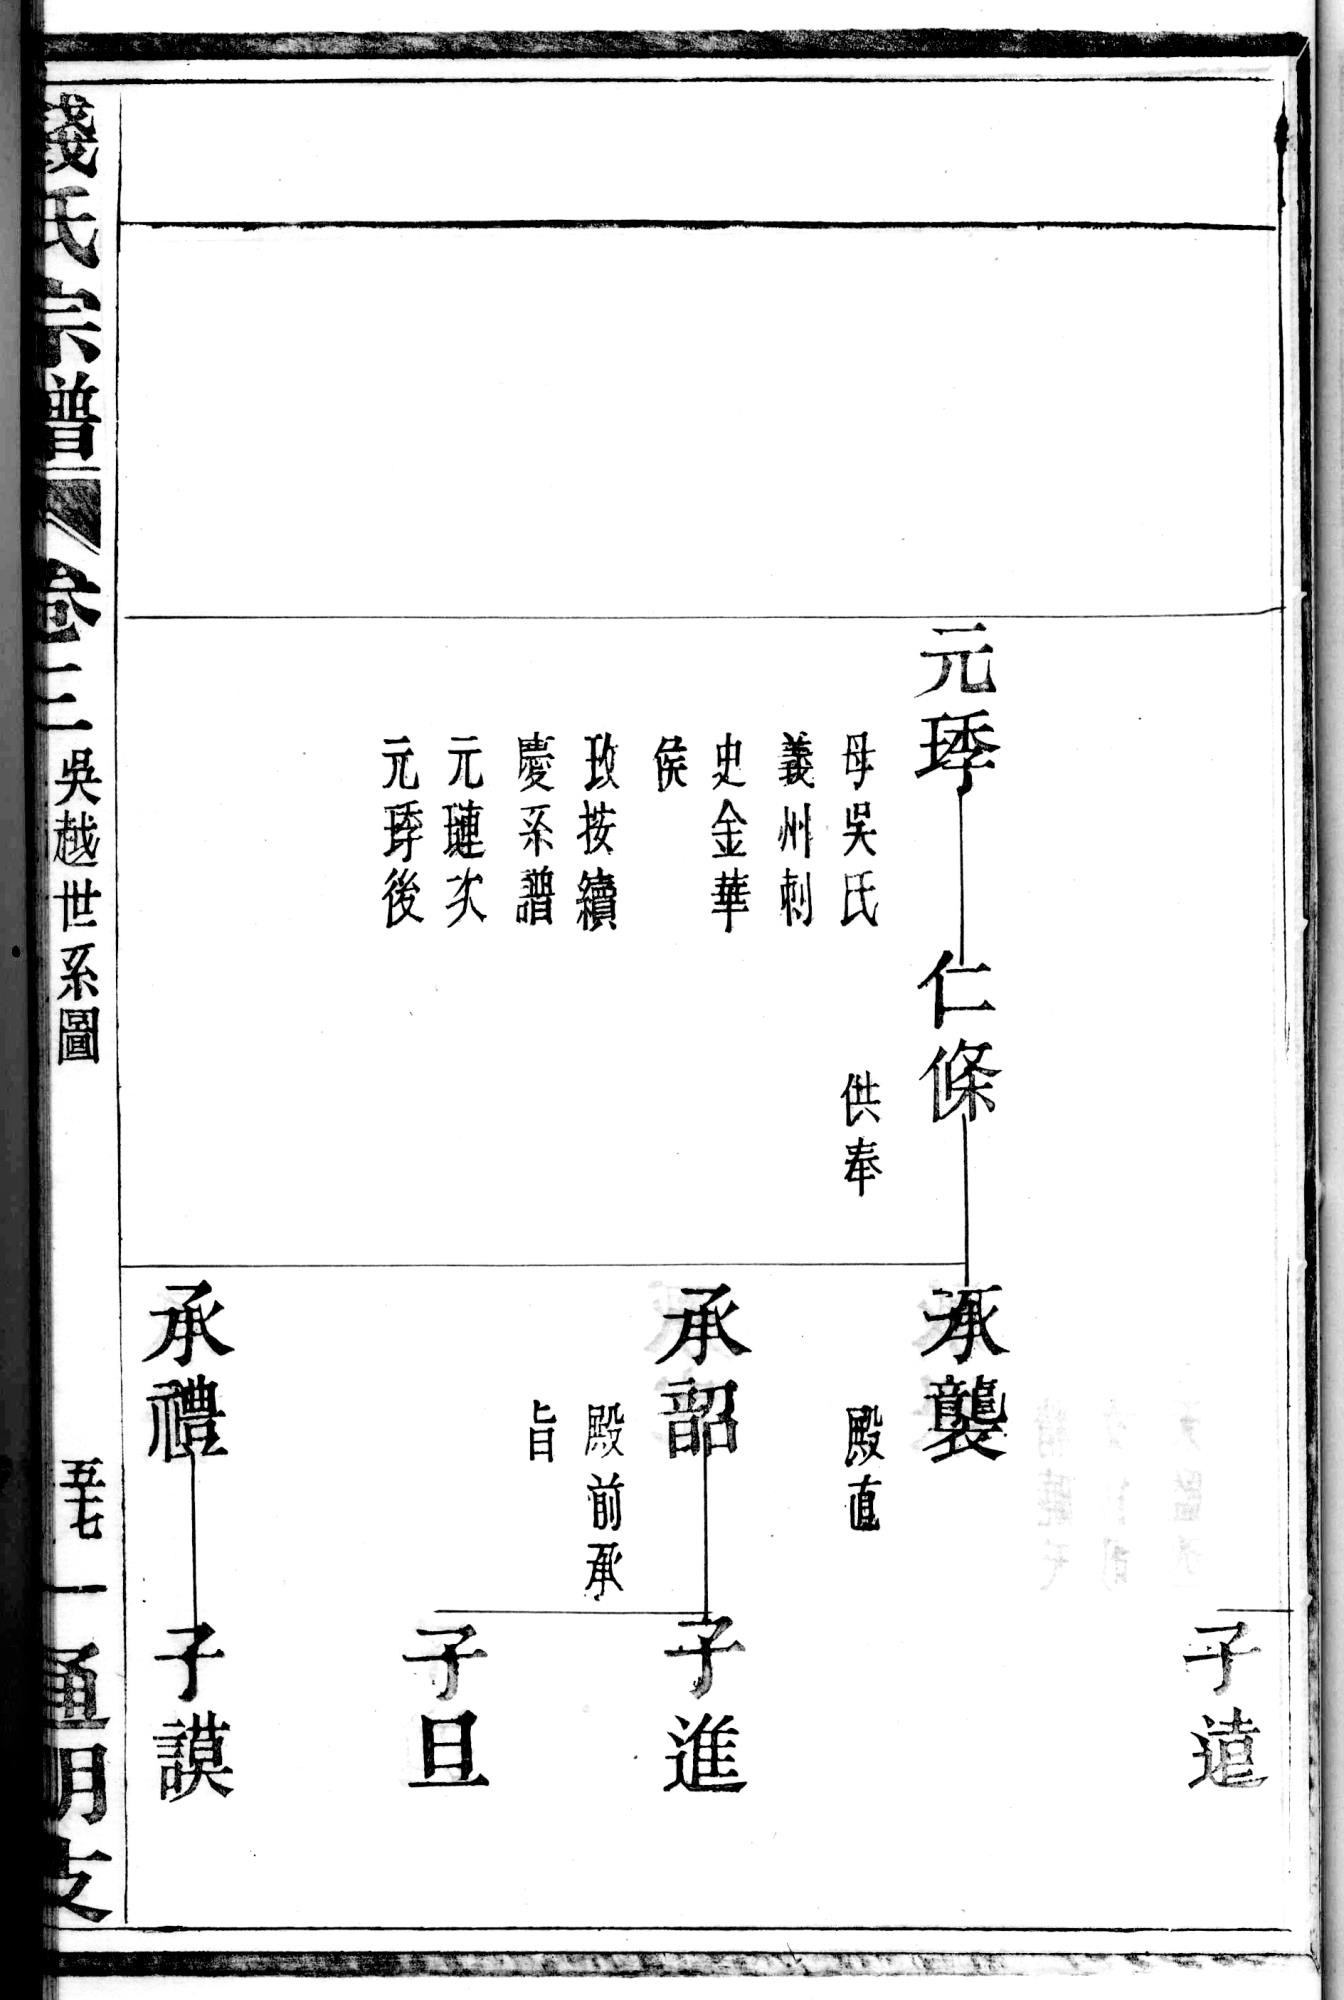 子遠
元㻎
母吳氏
義州刺
史金華
侯
攷按續
慶系譜
元璉次
元㻎後
仁條
供奉
承襲
殿直
承韶
殿前承
旨
子進
子旦
承禮
子謨
錢氏宗譜
卷三
吳越世系圖
五十七
一
通明支